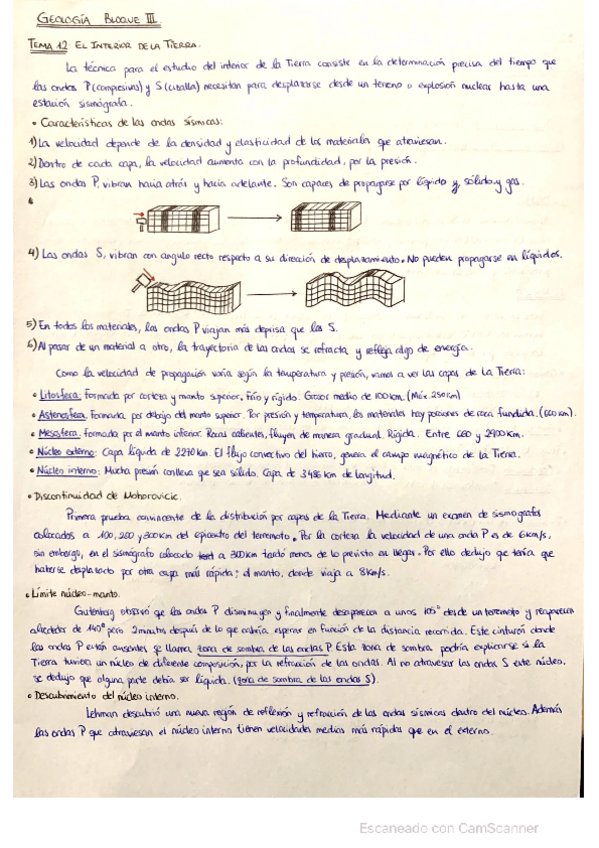 GEOLOGÍA BLOQUE III.
TEMA 12: EL INTERIOR DE LA TIERRA.
La técnica para el estudio del interior de la Tierra consiste en la determinación precisa del tiempo que
las ondas P (compresivas) y S (cizalla) necesitan para desplazarse desde un terreno o explosión nuclear hasta una
estación sismógrafa.
• Características de las ondas sísmicas:
1) La velocidad depende de la densidad y elasticidad de los materiales que atraviesan.
2) Dentro de cada capa, la velocidad aumenta con la profundidad, por la presión.
3) Las ondas P, vibran hacia atrás y hacia adelante. Son capaces de propagarse por líquido y, sólido y gas.
4) Las ondas S, vibran con angulo recto respecto a su dirección de desplazamiento. No pueden propagarse en líquidos.
5) En todos los materiales, las ondas P viajan más deprisa que las S.
6) Al pasar de un material a otro, la trayectoria de las ondas se refracta y refleja algo de energía.
Como la velocidad de propagación varía según la temperatura y presión, vamos a ver las capas de la Tierra:
• Litosfera: Formada por corteza y manto superior. Frío y rígido. Grosor medio de 100km. (Máx. 250km)
• Astenosfera: Formada por debajo del manto superior. Por presión y temperatura, los materiales hay porciones de roca fundida. (660km).
• Mesosfera: formada por el manto inferior. Rocas calientes, fluyen de manera gradual. Rígida. Entre 660 y 2900km.
• Núcleo externo: Capa líquida de 2270km. El flujo convectivo del hierro, genera el campo magnético de la Tierra.
• Núcleo interno: Mucha presión conlleva que sea sólido. Capa de 3486km de longitud.
• Discontinuidad de Mohorovicic.
Primera prueba convincente de la distribución por capas de la Tierra. Mediante un examen de sismografos
colocados a 100, 200 y 300km del epicentro del terremoto. Por la corteza la velocidad de una onda P es de 6km/s,
sin embargo, en el sismógrafo colocado a 300km tardó menos de lo previsto en llegar. Por ello dedujo que tenía que
haberse desplazado por otra capa más rápida; el manto, donde viaja a 8km/s.
• Límite núcleo-manto.
Gutenberg observó que las ondas P disminuyen y finalmente desaparecen a unos 105° desde un terremoto y reaparecen
alrededor de 140° pero 2 minutos después de lo que cabría esperar en función de la distancia recorrida. Este cinturón donde
las ondas P están ausentes se llama, zona de sombra de las ondas P. Esta zona de sombra podría explicarse si la
Tierra tuviera un núcleo de diferente composición, por la refracción de las ondas. Al no atravesar las ondas S este núcleo,
se dedujo que alguna parte debía ser líquida. (zona de sombra de las ondas S).
• Descubrimiento del núcleo interno.
Lehman descubrió una nueva región de reflexión y refracción de las ondas sísmicas dentro del núcleo. Además
las ondas P que atraviesan el núcleo interno tienen velocidades medias más rápidas que en el externo.
Escaneado con CamScanner